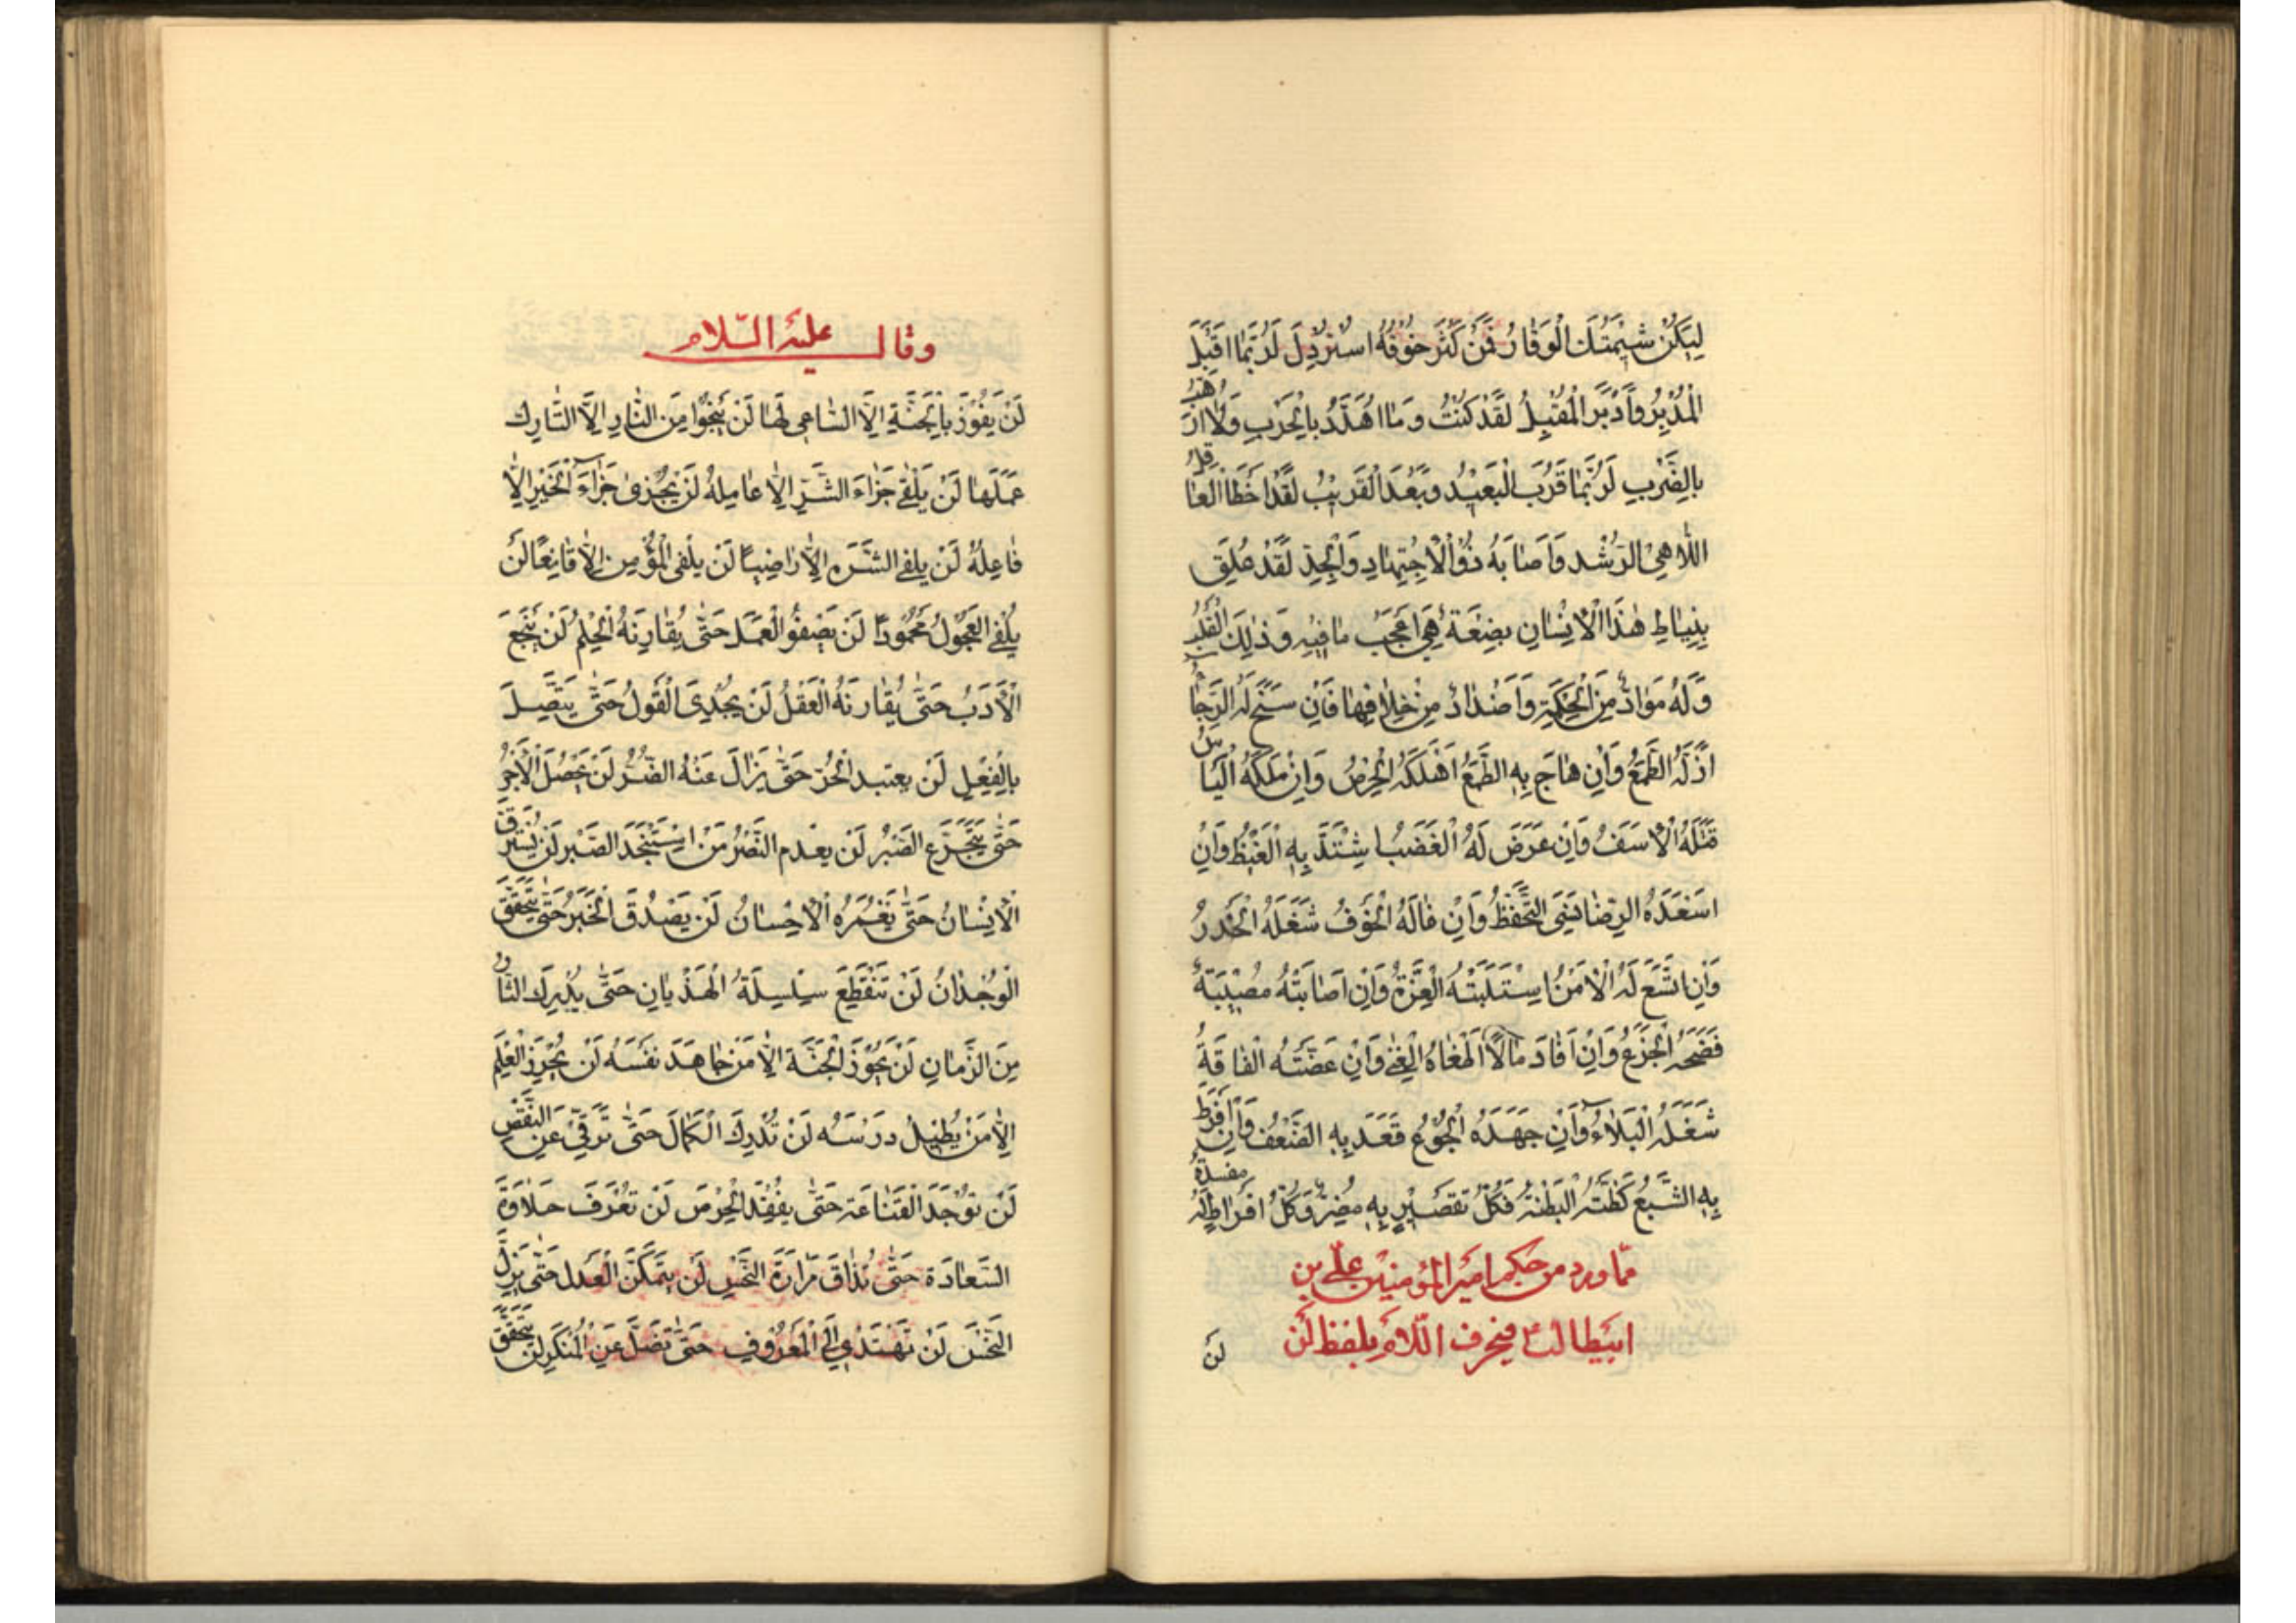 لِيَكُنْ شِيمَتُكَ الْوَقَارُ فَمَنْ كَثُرَ خَوْفُهُ اسْتُرْذِلَ لَرُبَّمَا اقْبَلَ
الْمُدْبِرُ وَاَدْبَرَ الْمُقْبِلُ لَقَدْ كُنْتُ وَمَا اُهَدَّدُ بِالْحَرْبِ وَلَا اُرَهَّبُ
بِالضَّرْبِ لَرُبَّمَا قَرُبَ الْبَعِيدُ وَبَعُدَ الْقَرِيبُ لَقَدْ اَخْطَا الْعَاقِلُ
اللَّاهِي الرُّشْدَ وَاَصَابَهُ ذُو الْاِجْتِهَادِ وَالْجِدِّ لَقَدْ عُلِّقَ
بِنِيَاطِ هٰذَا الْاِنْسَانِ بِضْعَةٌ هِيَ اَعْجَبُ مَا فِيهِ وَذٰلِكَ الْقَلْبُ
وَلَهُ مَوَادٌّ مِنَ الْحِكْمَةِ وَاَضْدَادٌ مِنْ خِلَافِهَا فَاِنْ سَنَحَ لَهُ الرَّجَاءُ
اَذَلَّهُ الطَّمَعُ وَاِنْ هَاجَ بِهِ الطَّمَعُ اَهْلَكَهُ الْحِرْصُ وَاِنْ مَلَكَهُ الْيَاسُ
قَتَلَهُ الْاَسَفُ وَاِنْ عَرَضَ لَهُ الْغَضَبُ اشْتَدَّ بِهِ الْغَيْظُ وَاِنْ
اسْعَدَهُ الرِّضَا نَسِيَ التَّحَفُّظَ وَاِنْ غَالَهُ الْخَوْفُ شَغَلَهُ الْحَذَرُ
وَاِنِ اتَّسَعَ لَهُ الْاَمْنُ اسْتَلَبَتْهُ الْعِزَّةُ وَاِنْ اَصَابَتْهُ مُصِيبَةٌ
فَضَحَهُ الْجَزَعُ وَاِنْ اَفَادَ مَالًا اَطْغَاهُ الْغِنٰى وَاِنْ عَضَّتْهُ الْفَاقَةُ
شَغَلَهُ الْبَلَاءُ وَاِنْ جَهَدَهُ الْجُوعُ قَعَدَ بِهِ الضَّعْفُ وَاِنْ اَفْرَطَ
بِهِ الشَّبَعُ كَظَّتْهُ الْبَطْنَةُ فَكُلُّ تَقْصِيرٍ بِهِ مُضِرٌّ وَكُلُّ اِفْرَاطٍ لَهُ مفسدة
مما ورد من حكم امير المؤمنين علي بن
ابيطالب ع في حرف اللام بلفظ لن
لن
وقال عليه السلام
لَنْ يَفُوزَ بِالْجَنَّةِ اِلَّا السَّاعِي لَهَا لَنْ يَنْجُوا مِنَ النَّارِ اِلَّا التَّارِكُ
عَمَلَهَا لَنْ يَلْقٰى جَزَاءَ الشَّرِّ اِلَّا عَامِلُهُ لَنْ يُجْزٰى جَزَاءَ الْخَيْرِ اِلَّا
فَاعِلُهُ لَنْ يلفى الشَّرَه اِلَّا رَاضِيًا لَنْ يلْفى الْمُؤْمِن اِلَّا قَانِعًا لَنْ
يُلْفَى الْعَجُولُ مَحْمُودًا لَنْ يَصْفُوَ الْعَمَلُ حَتَّى يُقَارِنَهُ الْحِلْمُ لَنْ يَنْجَعَ
الْاَدَبُ حَتَّى يُقَارِنَهُ الْعَقْلُ لَنْ يُجْدِيَ الْقَوْلُ حَتَّى يَتَّصِلَ
بِالْفِعْلِ لَنْ يتعبد الْحُرّ حَتَّى يُزَالَ عَنْهُ الضُّرُّ لَنْ يَحْصُلَ الْاَجْرُ
حَتَّى يَتَجَرَّعَ الصَّبْرُ لَنْ يعْدم النَّصْرُ مَنْ اسْتَنْجَدَ الصَّبْر لَنْ يُسْتَرَقَّ
الْاِنْسَانُ حَتَّى يَغْمُرَهُ الْاِحْسَانُ لَنْ يَصْدُقَ الْخَبَرُ حَتَّى يَتَحَقَّقَ
الْوُجْدَانُ لَنْ تَنْقَطِعَ سِلْسِلَةُ الْهَذْيَانِ حَتَّى يُدْرِكَ الثَّارُ
مِنَ الزَّمَانِ لَنْ يَحُوزَ الْجَنَّةَ اِلَّا مَنْ جَاهَدَ نَفْسَهُ لَنْ يُحْرِزَ الْعِلْمَ
اِلَّا مَنْ يُطِيلُ دَرْسَهُ لَنْ تُدْرِكَ الْكَمَالَ حَتَّى تَرَقّٰى عَنِ النَّقْصِ
لَنْ تُوجَدَ الْقَنَاعَة حَتَّى يفْقِدَ الْحِرْصَ لَنْ تَعْرَفَ حَلَاوَةَ
السَّعَادَةِ حَتَّى تُذَاقَ مَرَارَةُ النَّحْسِ لَنْ يَتَمَكَّنَ الْعَدل حَتَّى يَزِلَّ
النَّحْس لَنْ تَهْتَدِيَ اِلَى الْمَعْرُوفِ حَتَّى تَضِلَّ عَنِ الْمُنْكَرِ لَنْ يَتَحَقَّقَ